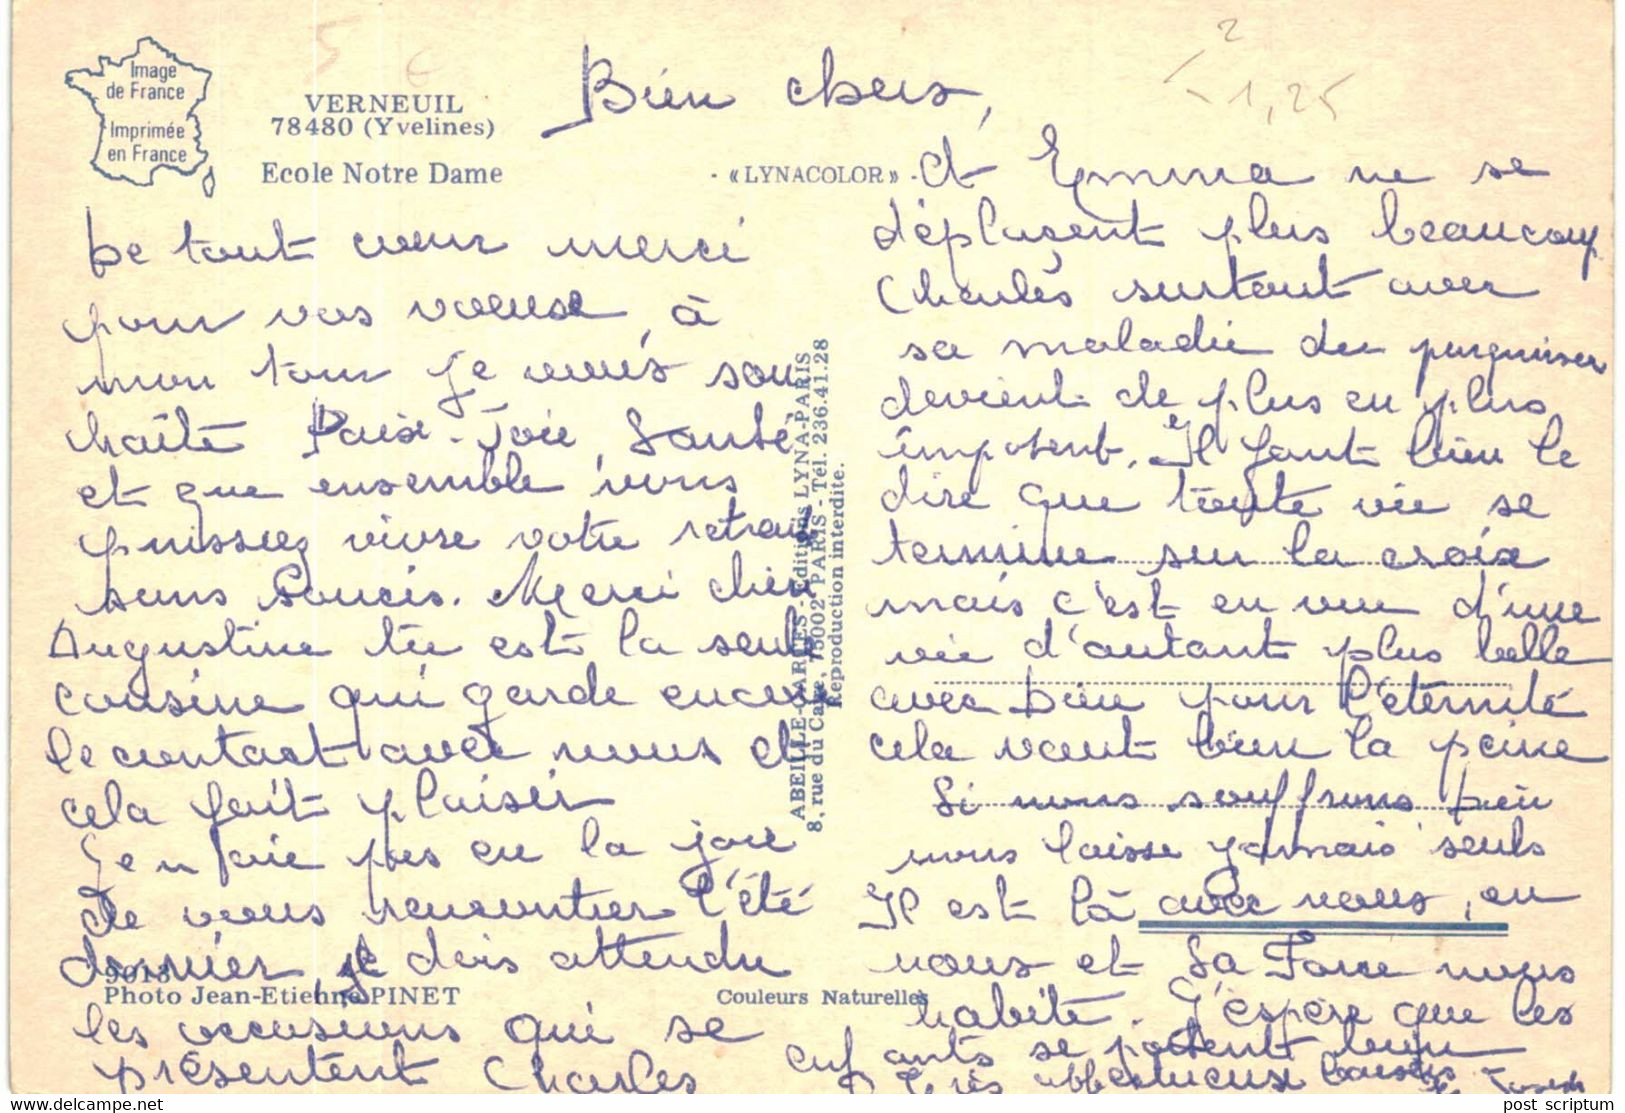 Image
de France
Imprimée
en France
VERNEUIL
78480 (Yvelines)
Ecole Notre Dame
«LYNACOLOR»
5 €
2
1,25
Bien chers,
De tout cœur merci
pour vos voeux, à
mon tour je vous sou
haite Paix - Joie, Santé
et que ensemble vous
puissiez vivre votre retraite
sans soucis. Merci chère
Augustine tu est la seule
cousine qui garde encore
le contact avec nous et
cela fait plaisir
Je n'aie pas eu la joie
de vous rencontrer l'été
dernier, je dois attendre
les occasions qui se
présentent Charles
et Emma ne se
déplaçent plus beaucoup
Charles surtout avec
sa maladie de
devient de plus en plus
impotent. Il faut bien le
dire que toute vie se
termine sur la croix
mais c'est en vue d'une
vie d'autant plus belle
avec Dieu pour l'éternité
cela vaut bien la peine
Si nous souffrons Dieu
nous laisse jamais seuls
Il est là avec nous, en
nous et Sa Force nous
habite. J'espère que les
enfants se portent bien
Très affectueux baisers
Sr Joseph
ABEILLE-CARTES - Editions LYNA-PARIS
8, rue du Caire, 75002 PARIS - Tél. 236.41.28
Reproduction interdite.
9013
Photo Jean-Etienne PINET
Couleurs Naturelles
post scriptum